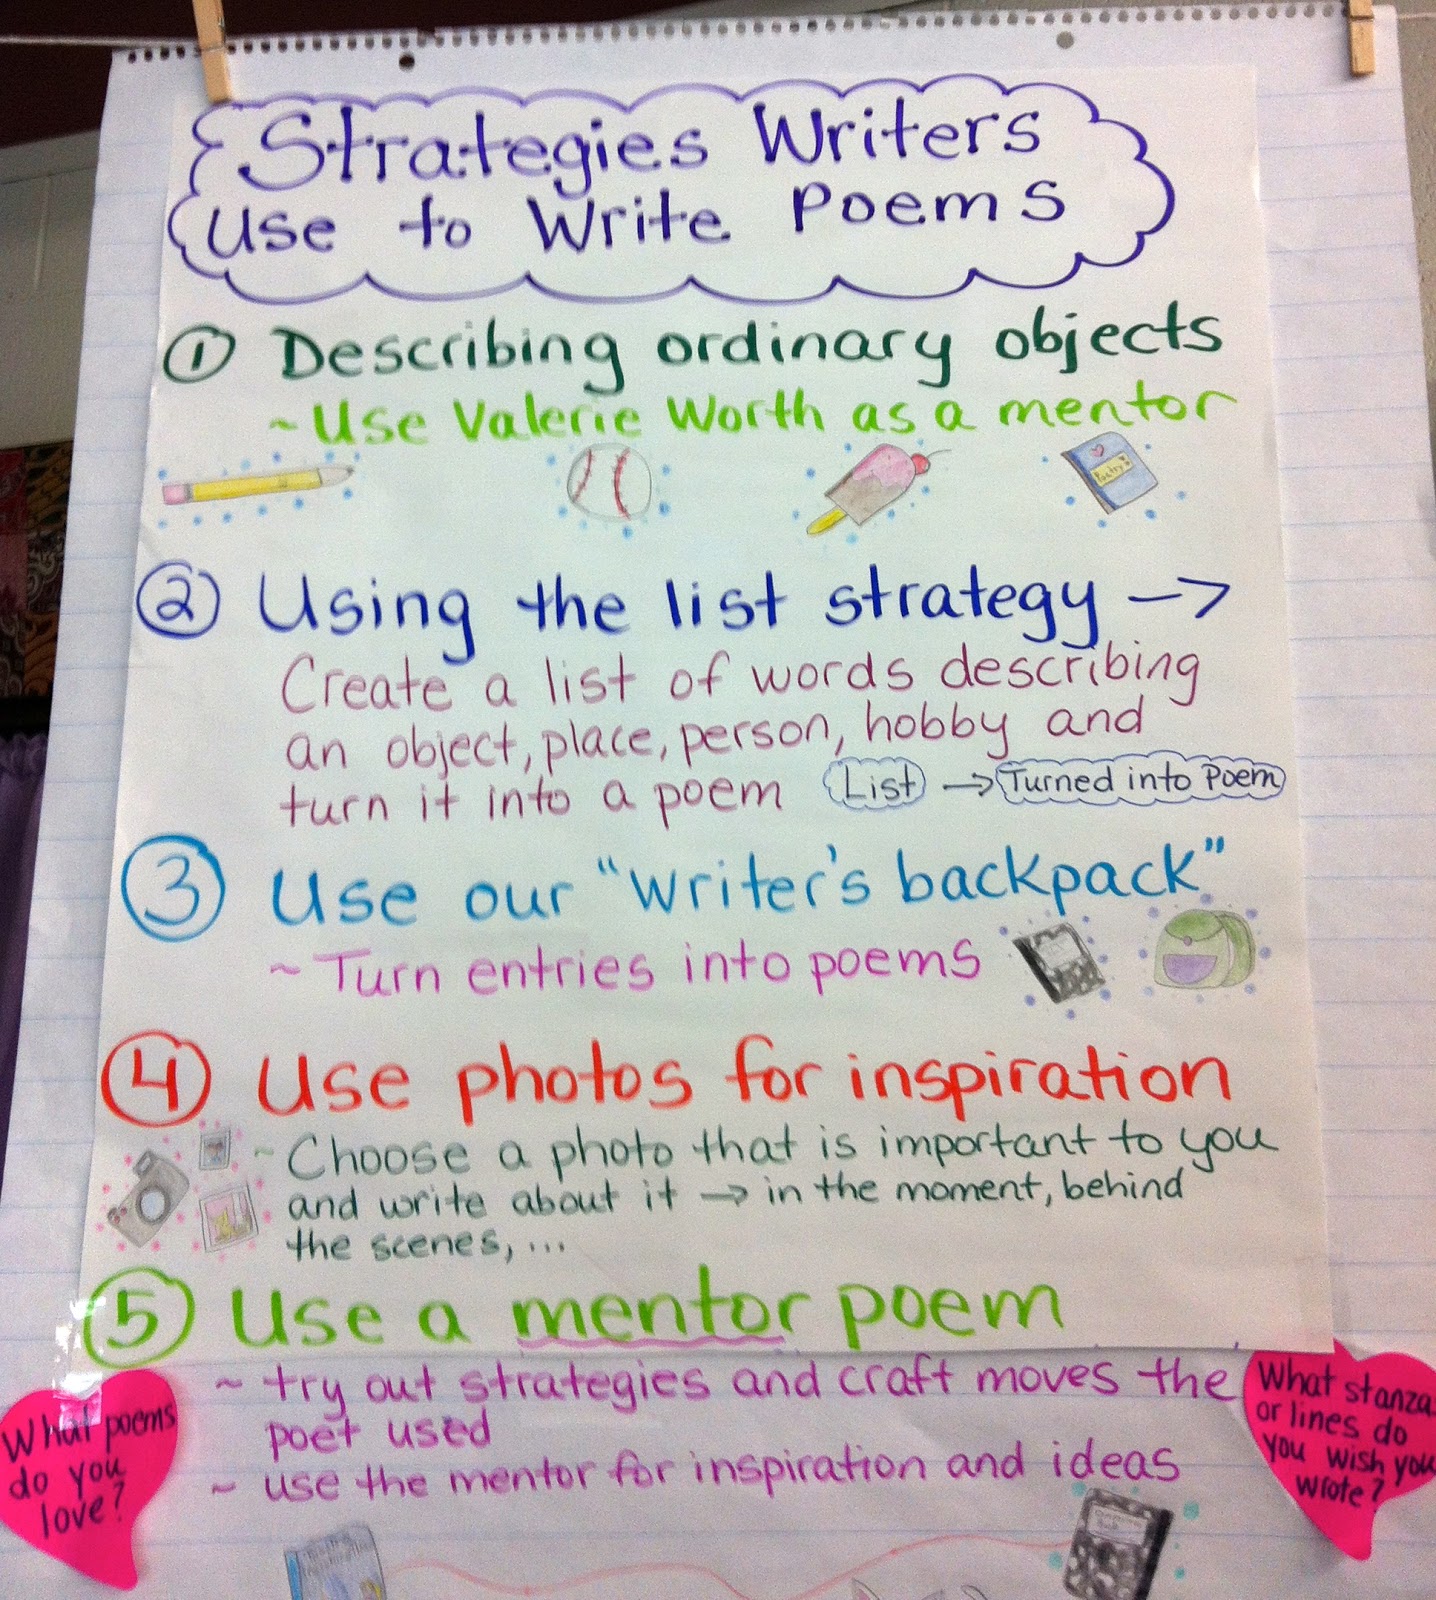 Strategies Writers
Use to Write Poems
1 Describing ordinary objects
~ Use Valerie Worth as a mentor
Poetry
2 Using the list strategy →
Create a list of words describing
an object, place, person, hobby and
turn it into a poem
List → Turned into Poem
3 Use our "writer's backpack"
~ Turn entries into poems
4 Use photos for inspiration
~ Choose a photo that is important to you
and write about it → in the moment, behind
the scenes, ...
5 Use a mentor poem
~ try out strategies and craft moves the
poet used
~ use the mentor for inspiration and ideas
What poems
do you
love?
What stanza
or lines do
you wish you
wrote?